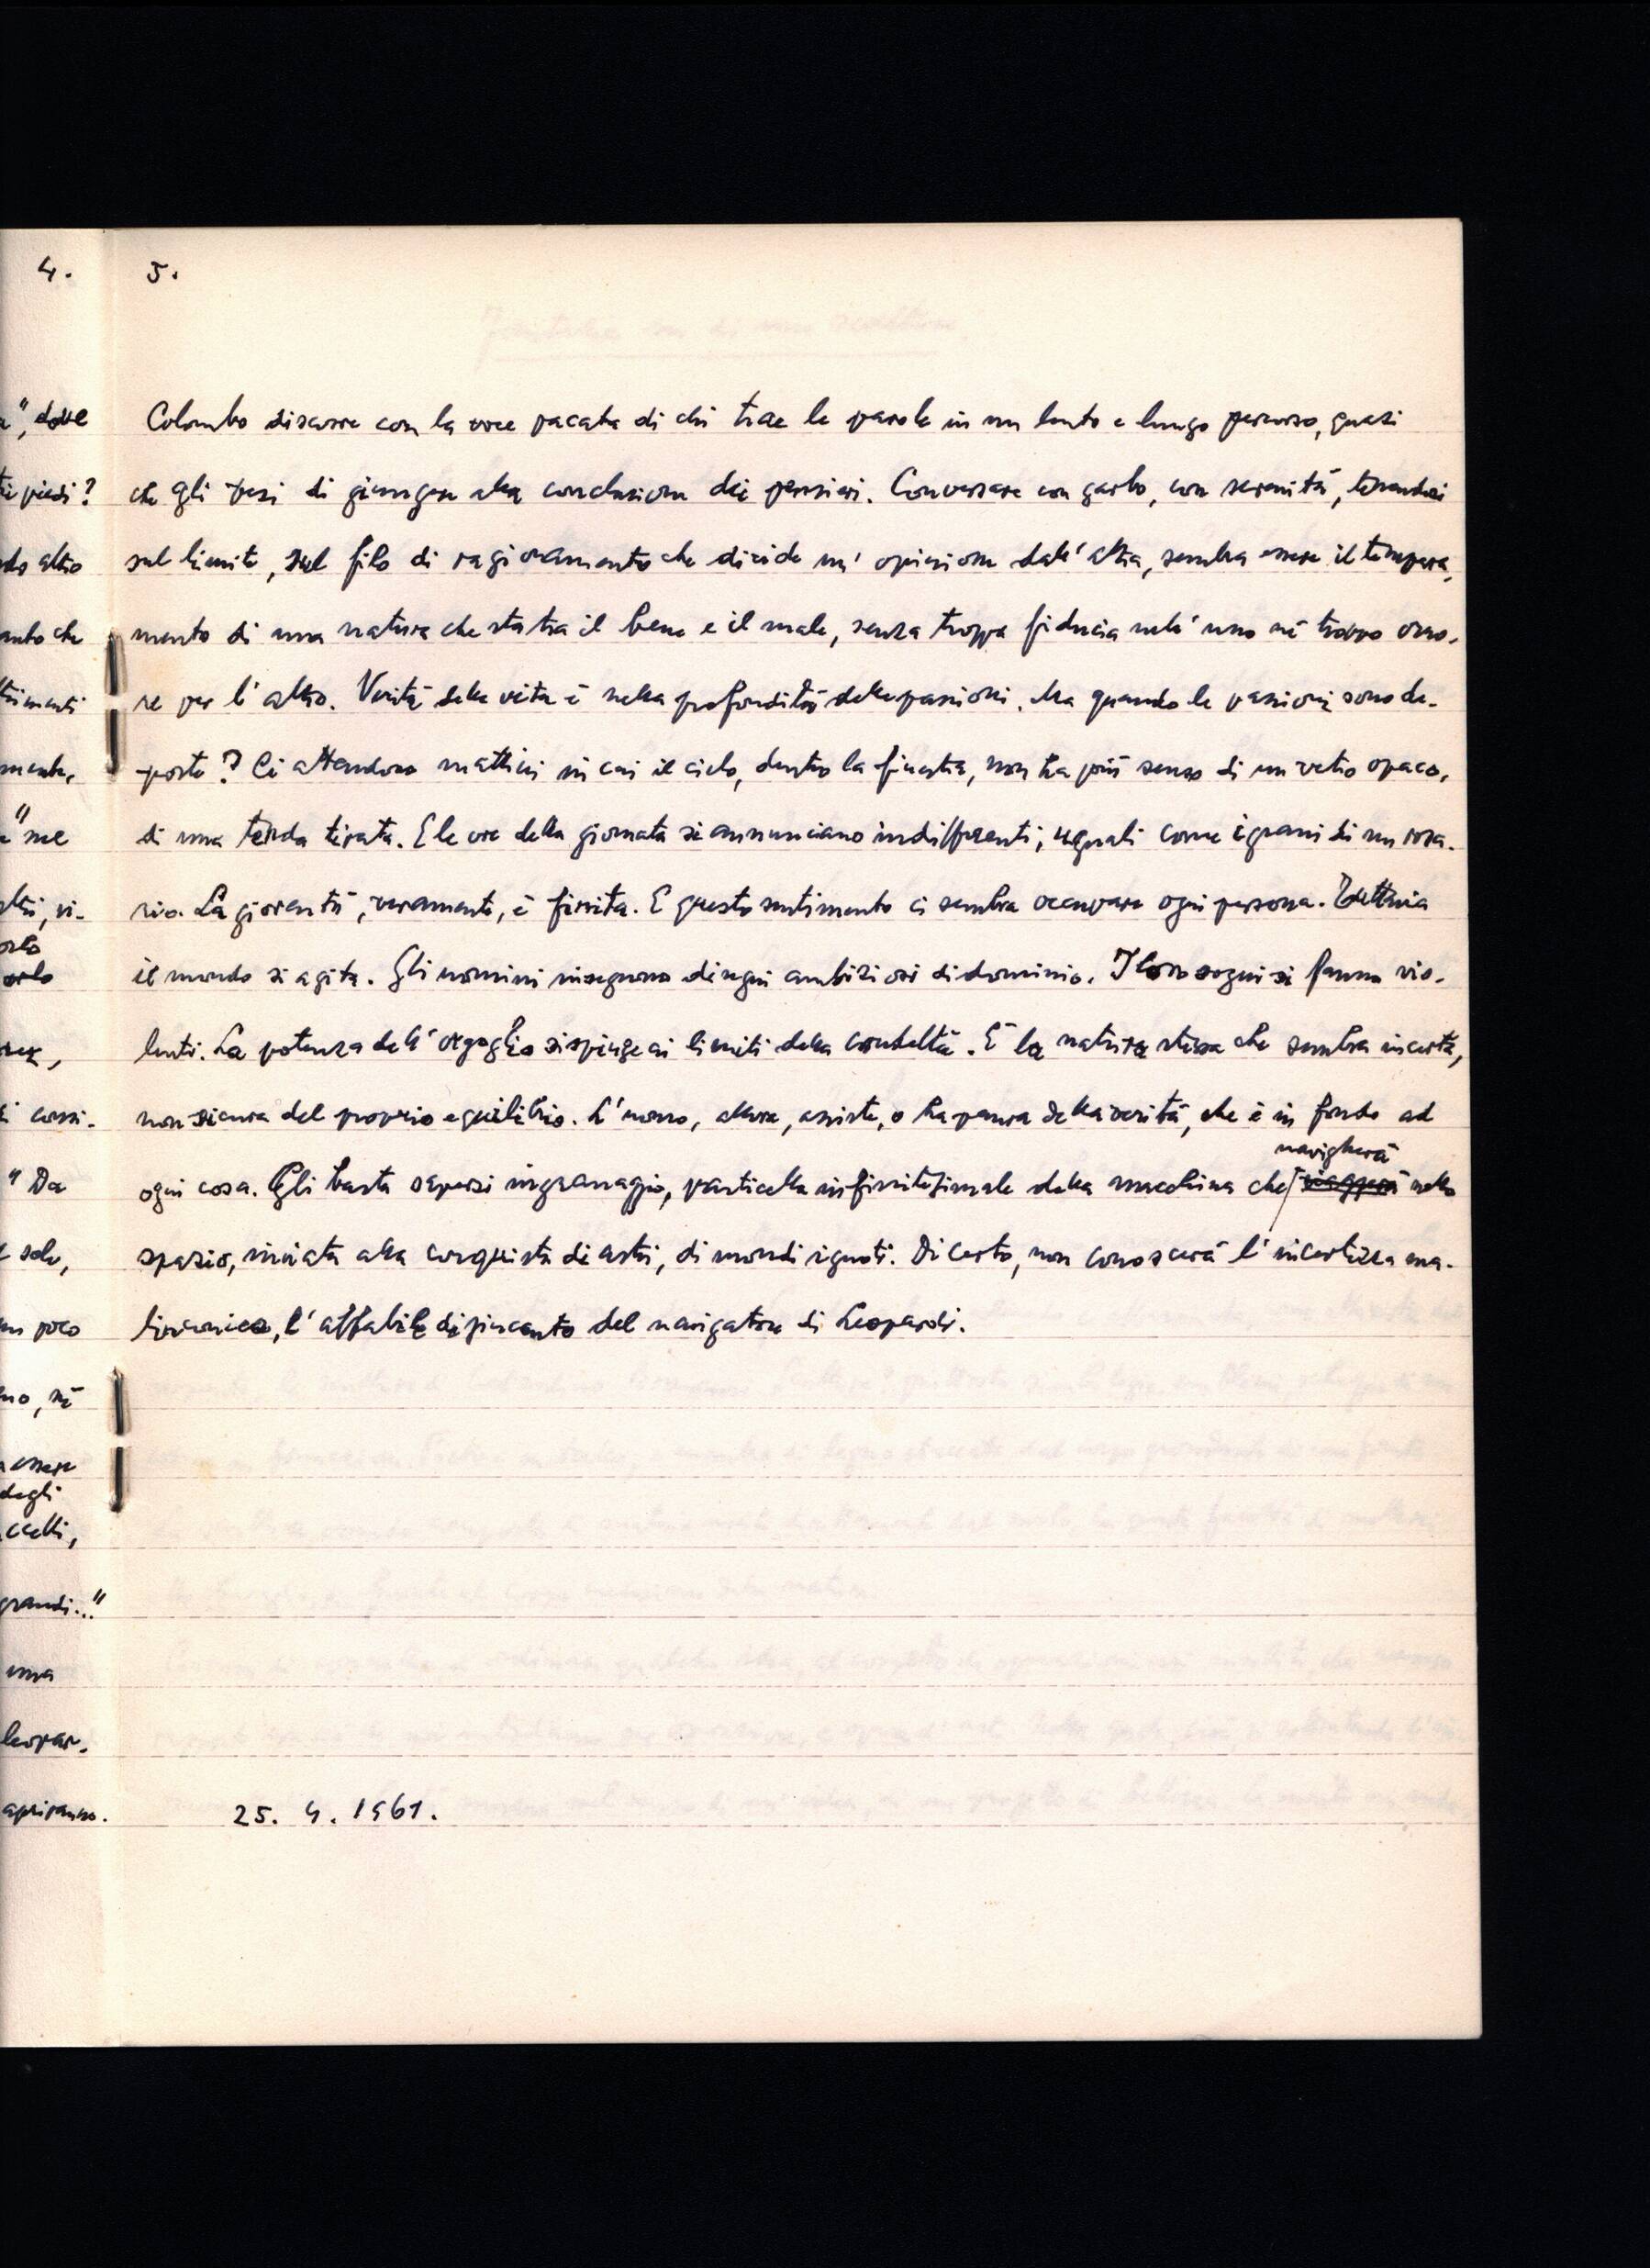 4.
5.
", dove
piedi?
altro
che
"me
solo
" Da
sole,
un poco
no, né
essere
degli
grandi..."
una
leopar-
apriranno.
Colombo discorre con la voce pacata di chi trae le parole in un lento e lungo percorso, quasi
che gli pesi di giungere alla conclusione dei pensieri. Conversare con garbo, con serenità, tenendosi
sul limite, sul filo di ragionamento che divide un' opinione dall' altra, sembra essere il tempera-
mento di una natura che sta tra il bene e il male, senza troppa fiducia nell' uno né troppo orro-
re per l' altro. Verità della vita è nella profondità delle passioni. Ma quando le passioni sono de-
poste? Ci attendono mattini in cui il cielo, dentro la finestra, non ha più senso di un vetro opaco,
di una tenda tirata. E le ore della giornata si annunciano indifferenti, uguali come i grani di un rosa-
rio. La gioventù, veramente, è finita. E questo sentimento ci sembra occupare ogni persona. Tuttavia
il mondo si agita. Gli uomini inseguono disegni ambiziosi di dominio. I loro sogni si fanno vio-
lenti. La potenza dell' orgoglio si spinge ai limiti della crudeltà. È la natura stessa che sembra incerta,
non sicura del proprio equilibrio. L' uomo, allora, assiste, o ha paura della verità, che è in fondo ad
navigherà
ogni cosa. Gli basta sapersi ingranaggio, particella infinitesimale della macchina che viaggerà nello
spazio, inviata alla conquista di astri, di mondi ignoti. Di certo, non conoscerà l' incertezza ma-
linconica, l' affabile disincanto del navigatore di Leopardi.
25. 4. 1961.